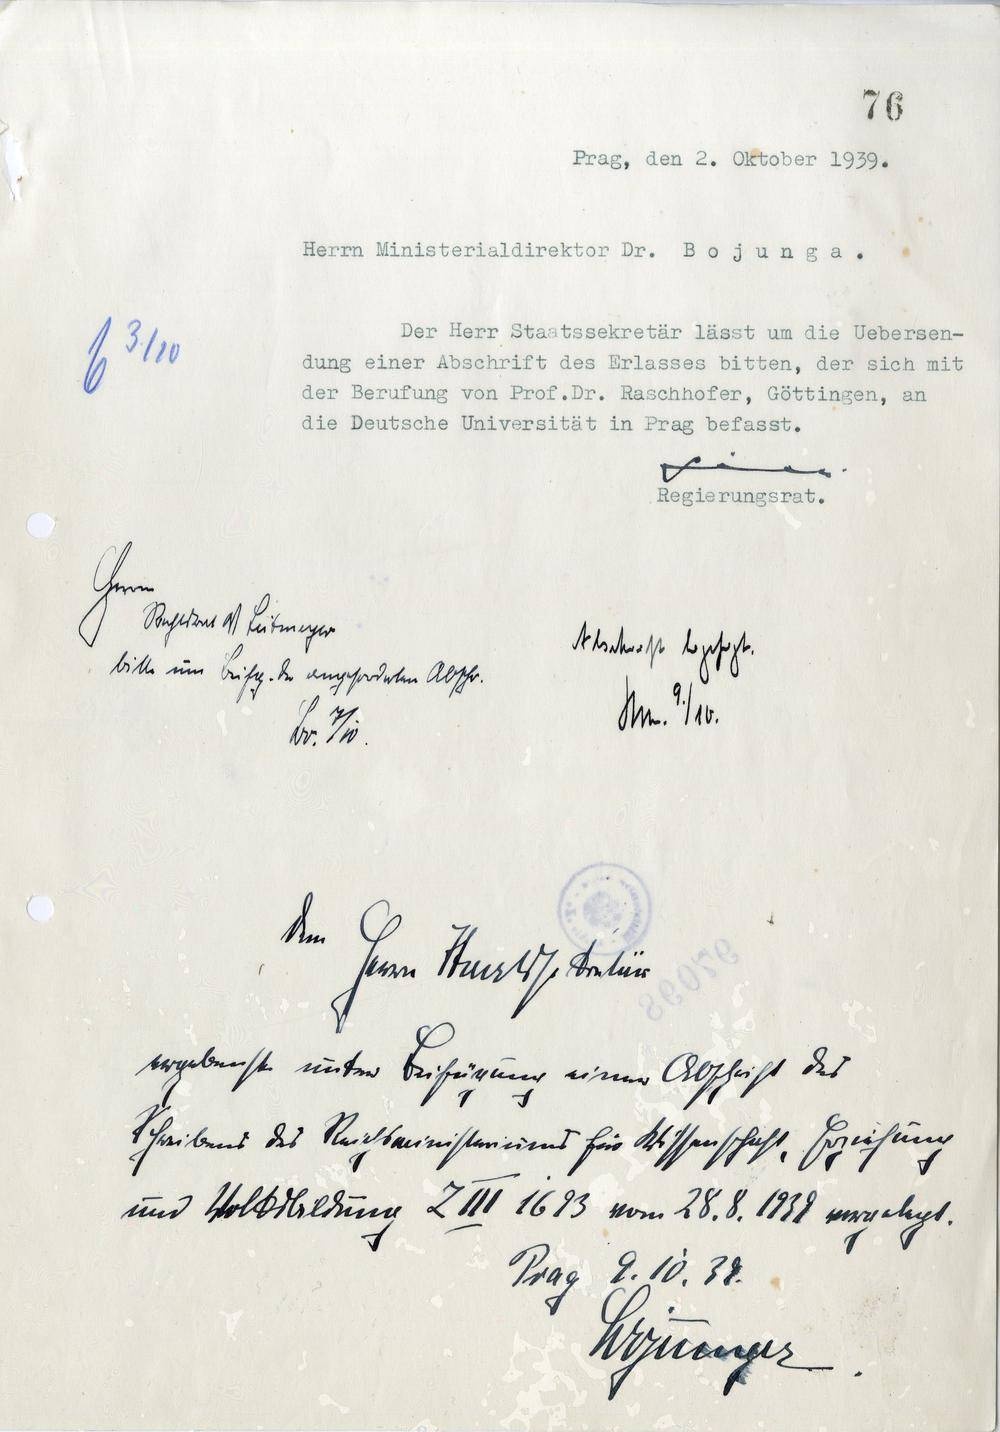 76
Prag, den 2. Oktober 1939.
Herrn Ministerialdirektor Dr. B o j u n g a .
Der Herr Staatssekretär lässt um die Uebersen-
dung einer Abschrift des Erlasses bitten, der sich mit
der Berufung von Prof.Dr. Raschhofer, Göttingen, an
die Deutsche Universität in Prag befasst.
3./10
Regierungsrat.
Herrn
bitte um Beifg. der angeforderten Abschr.
Bo. 7/10.
Abschrift beigefügt.
9./10.
Dem
Herrn Staatssekretär
ergebenst unter Beifügung einer Abschrift des
Schreibens des Reichsministeriums für Wissenschaft, Erziehung
und Volksbildung Z III 1693 vom 28.8.1939 vorgelegt.
Prag 9.10.39.
Bojunga